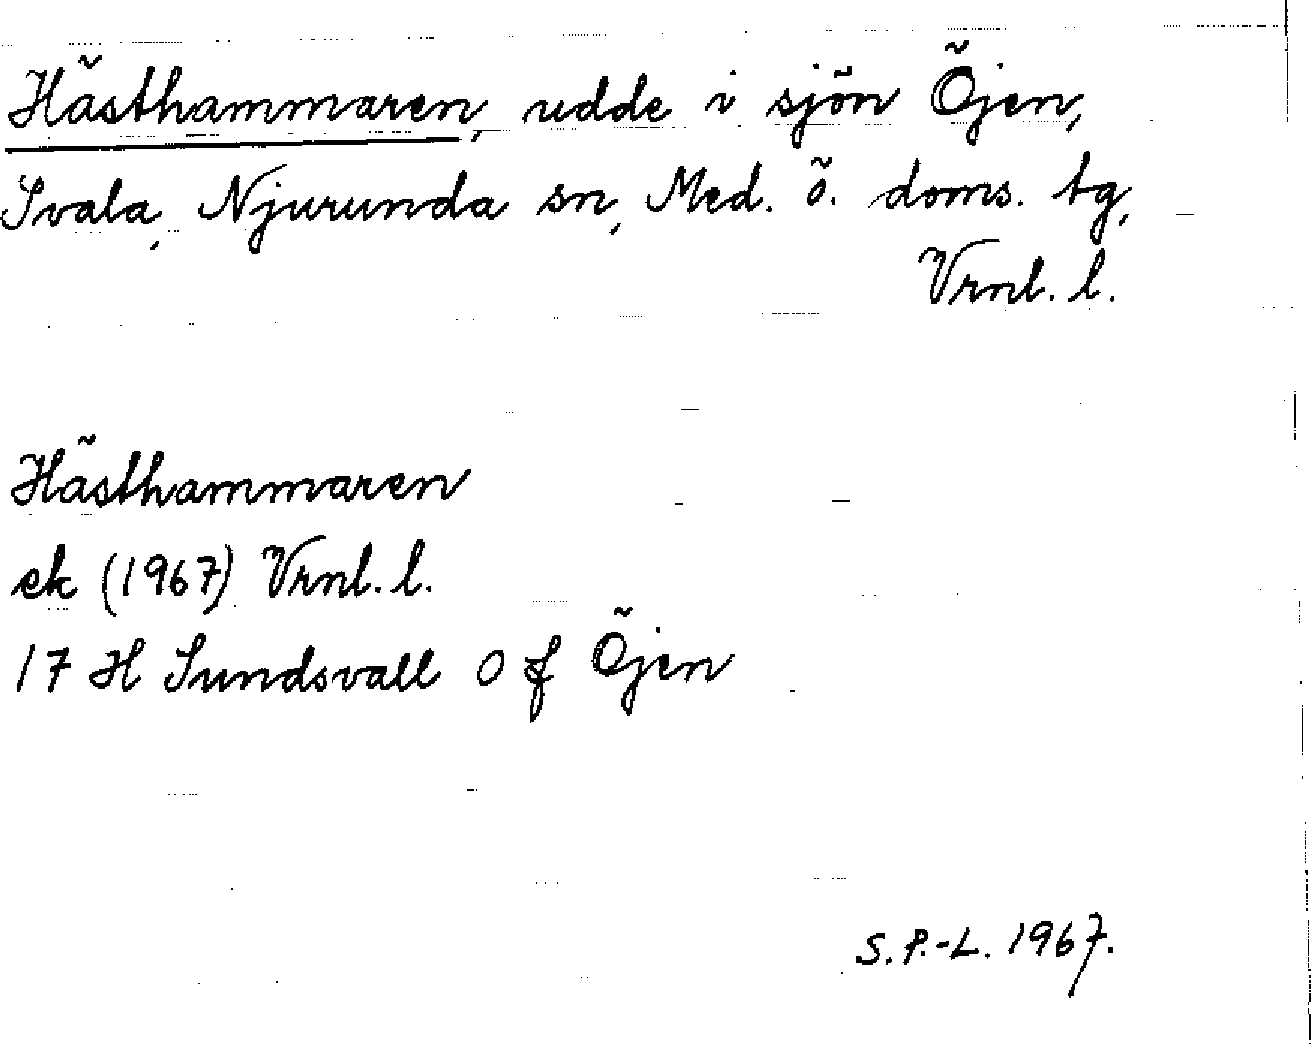 Hästhammaren, udde i sjön Öjen,
Svala, Njurunda sn, Med. ö. doms. tg,
Vrnl. l.
Hästhammaren
ek (1967) Vrnl. l.
17 H Sundsvall 0 f Öjen
S. P.-L. 1967.